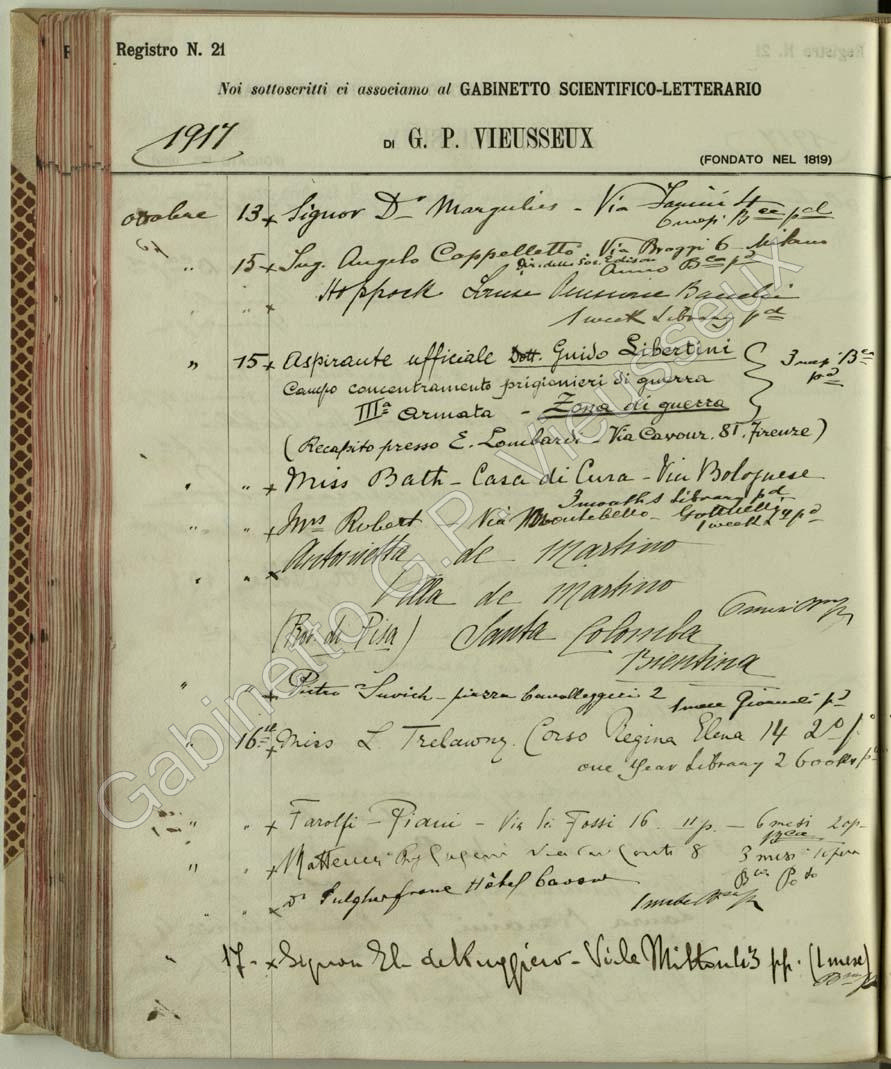 Registro N. 21
Noi sottoscritti ci associamo al GABINETTO SCIENTIFICO-LETTERARIO
1917
DI G. P. VIEUSSEUX
(FONDATO NEL 1819)
ottobre 13 x Signor Dr Margulies - Via
6 mesi Bca pd
" 15 x Ing. Angelo Cappelletto - Via Broggi 6 - Milano
Dir. della Soc. Edison Anno Bca pd
" x Hoppock Pensione
1 week Library pd
" 15 x Aspirante ufficiale Dott. Guido Libertini 3 mesi Bca
Campo concentramento prigionieri di guerra pd
IIIa Armata - Zona di guerra
(Recapito presso E. Lombardi - Via Cavour. 81. Firenze)
" " x Miss Bath - Casa di Cura - Via Bolognese
3 months Library pd
" " x Mrs Robert - Via Montebello - 1 week pd
" " x Antonietta de Martino
Villa de Martino
6 mesi
(Prov. di Pisa) Santa Colomba
Bientina
" " x Pietro Suvich - piazza Cavalleggeri 2 1 mese Giornali pd
" 16 x Miss L. Trelawny. Corso Regina Elena 14 2o p.
one Year Library 2 books pd
" " x Farolfi - Piani - Via dei Fossi 16 IIp. - 6 mesi 2 op.
Bca
" " x Matteucci Via dei Conti 8 3 mesi 1 opera
Bca Pdo
" " x Dr Hôtel Cavour
1 mese
" 17 - x Signora El. de Ruggiero - Viale Milton 3 pp. (1 mese)
Gabinetto G.P. Vieusseux